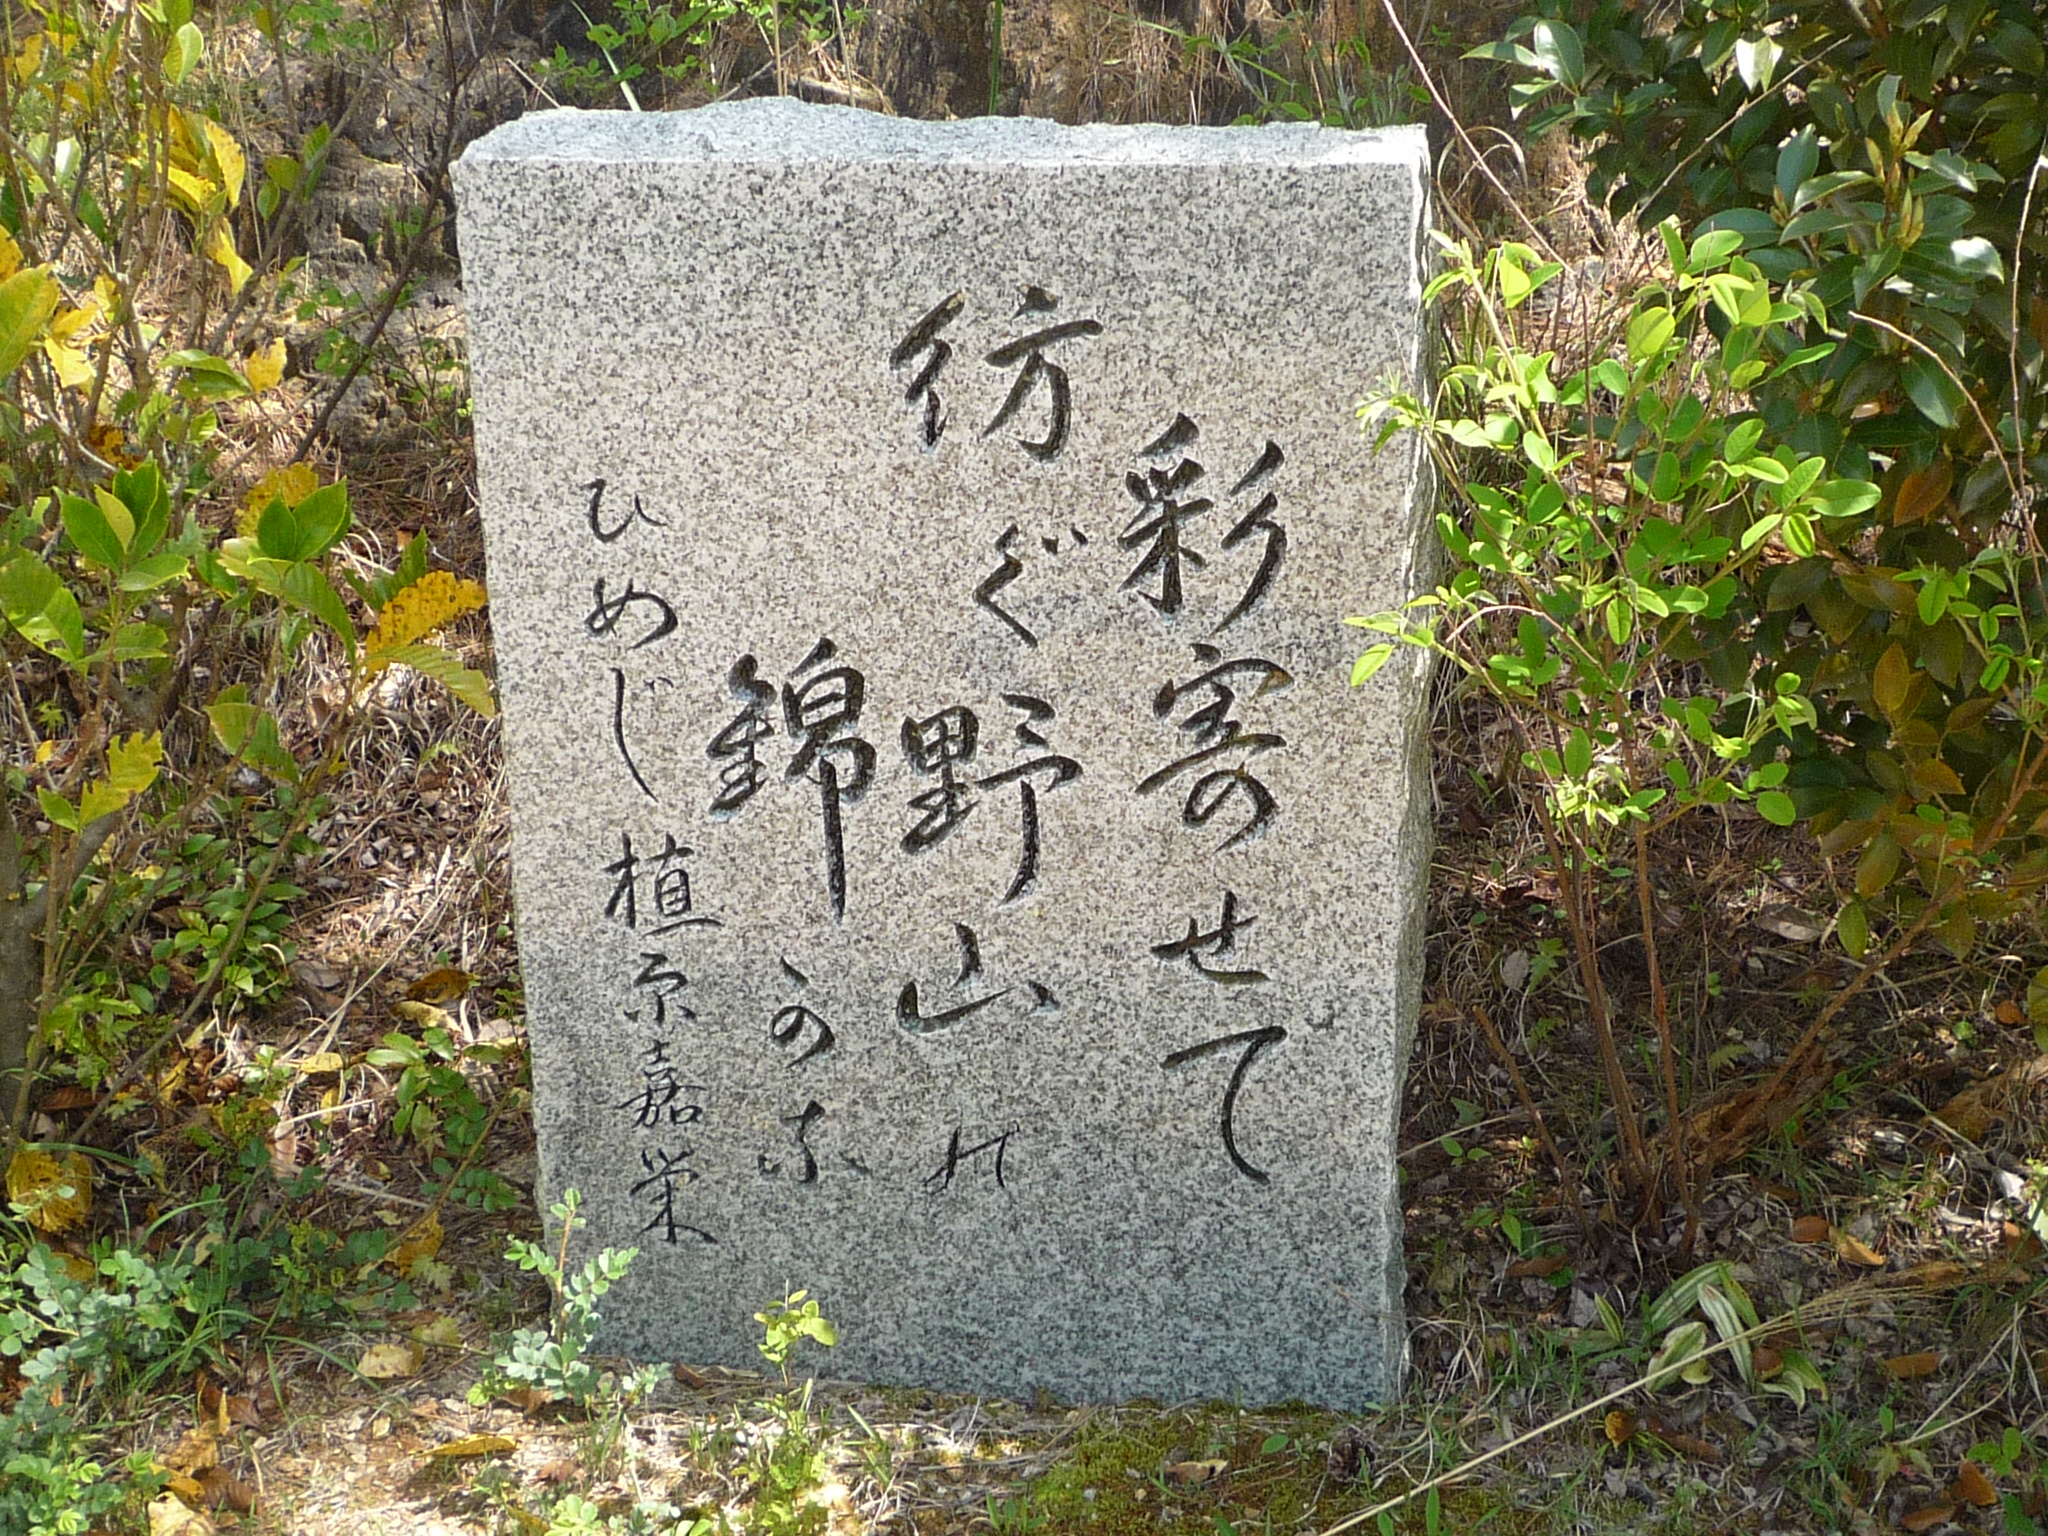 彩寄せて
紡ぐ野山の
錦かな
ひめじ 植原嘉栄